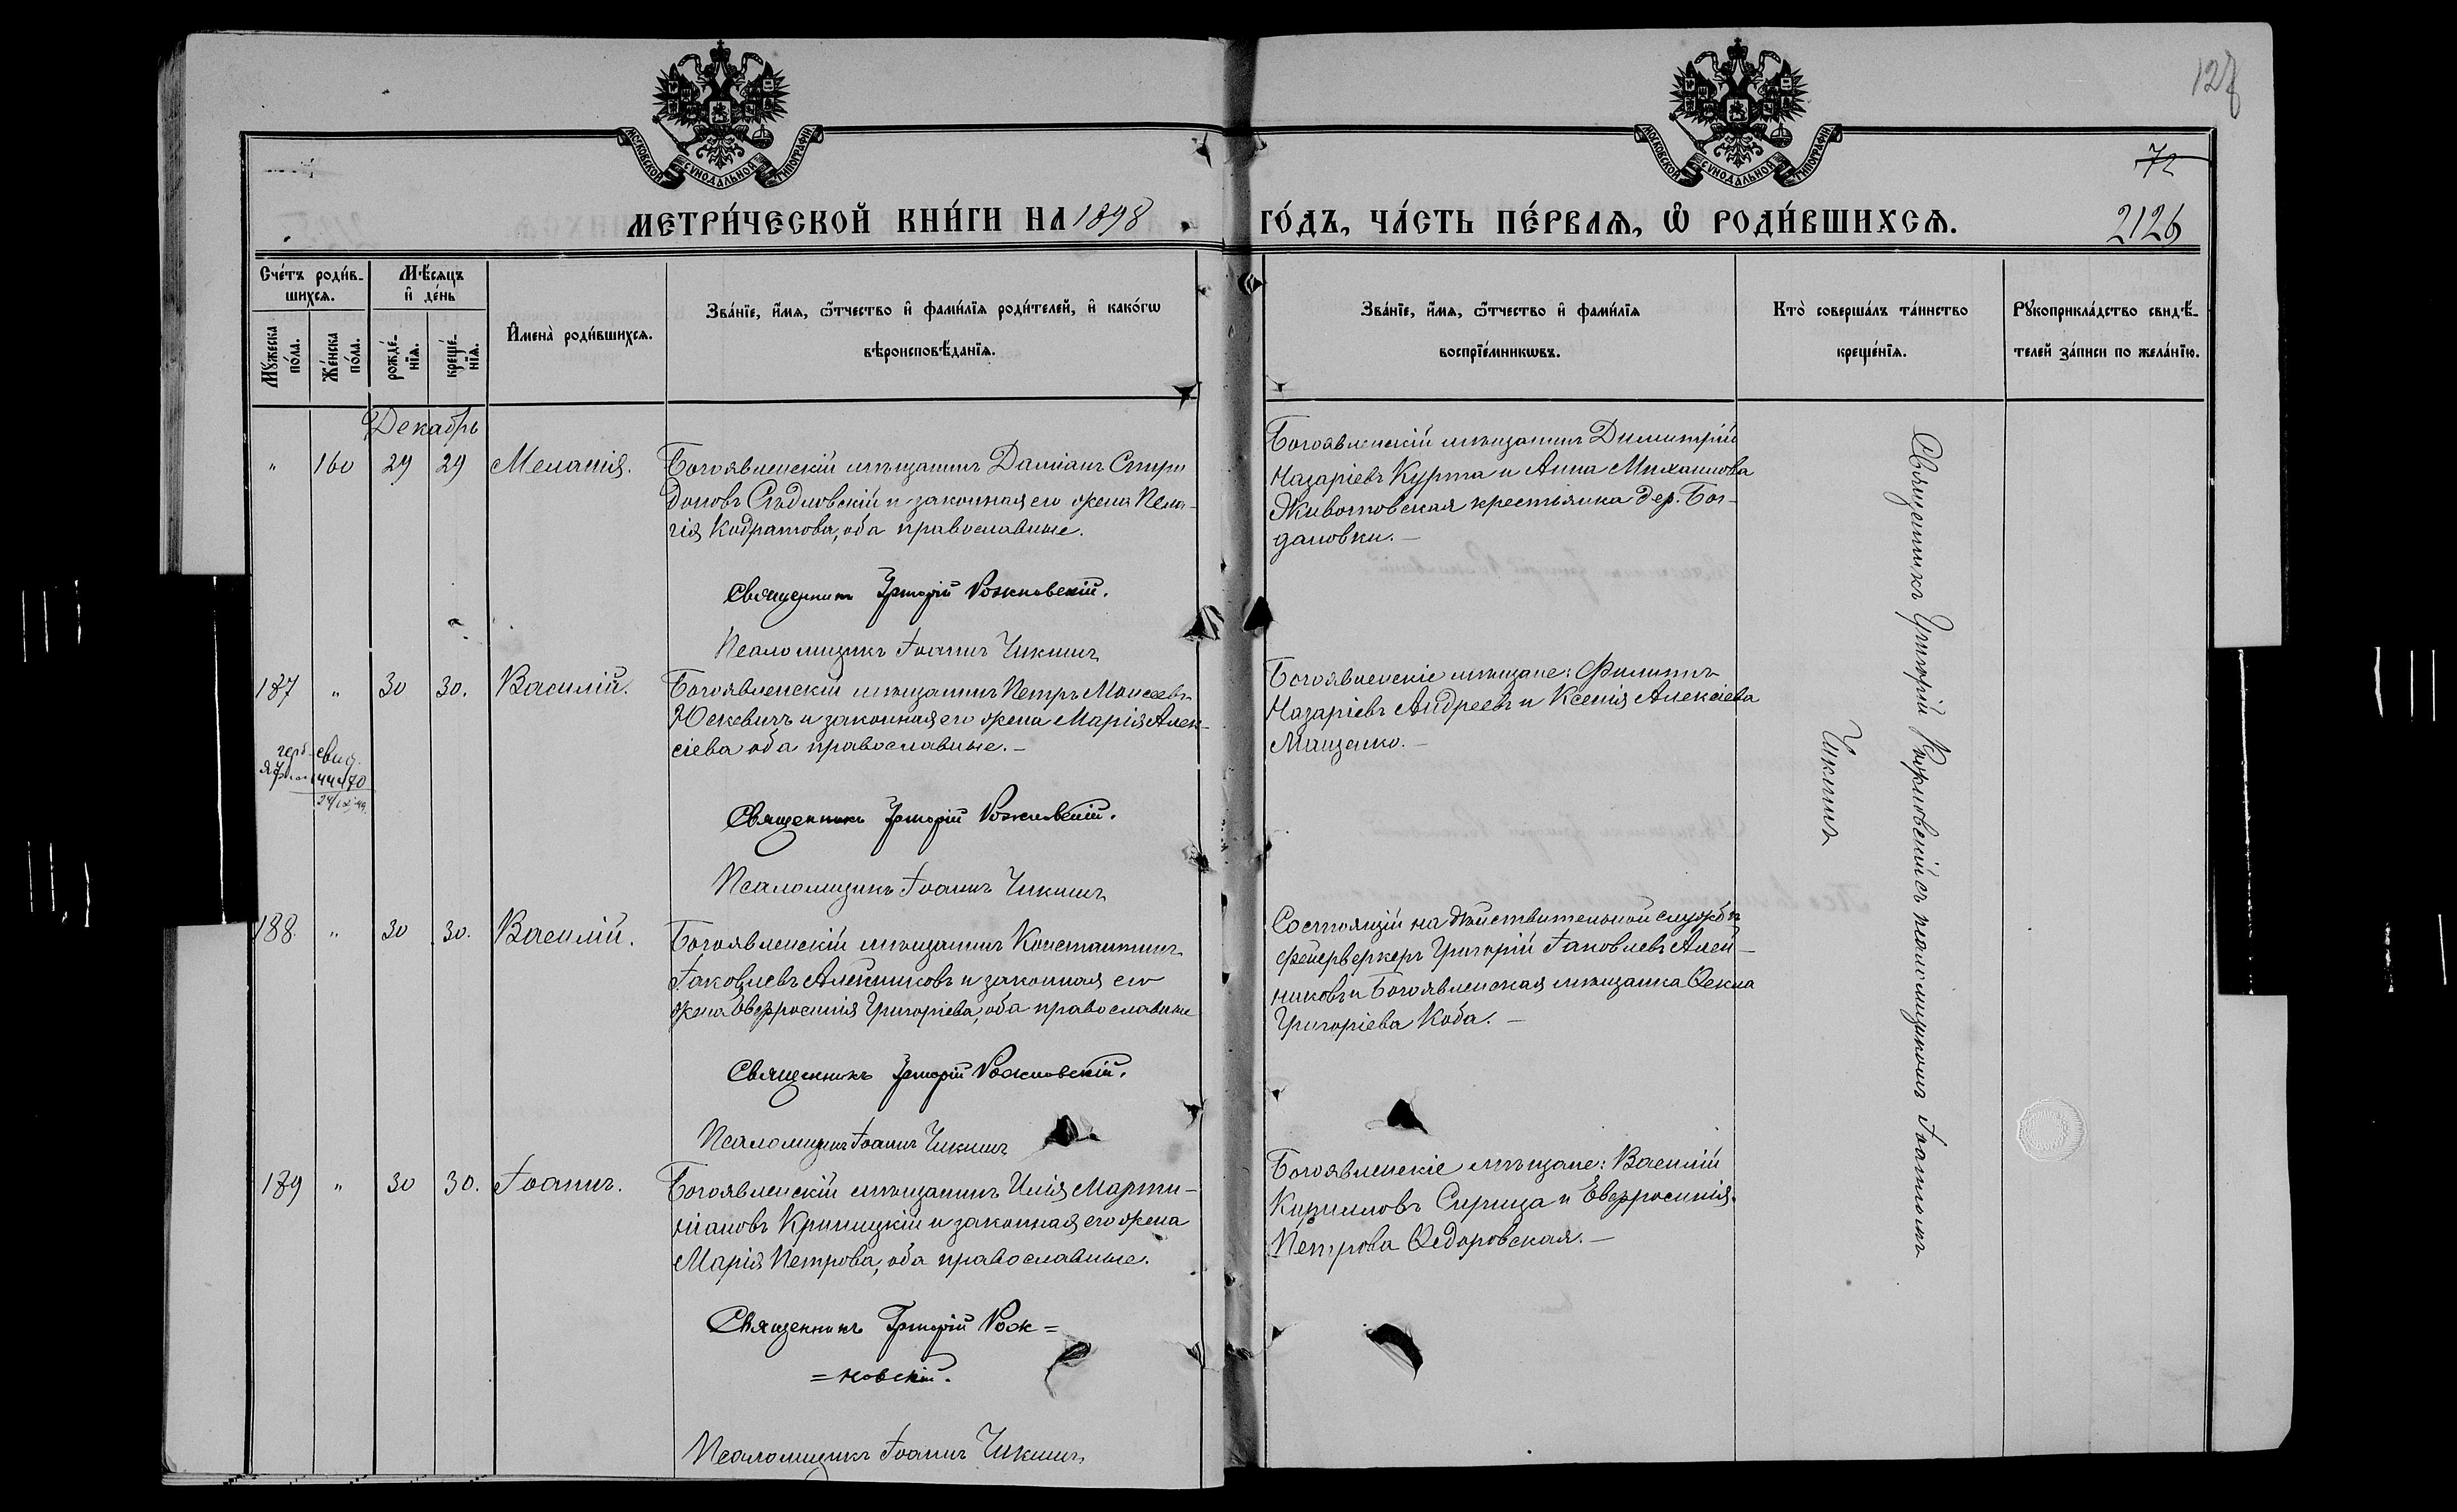 128
МОСКОВСКОЙ СѴНОДАЛЬНОЙ ТИПОГРАФІИ
МОСКОВСКОЙ СѴНОДАЛЬНОЙ ТИПОГРАФІИ
72
МЕТРИ́ЧЕСКОЙ КНИ́ГИ НА 1898
ГО́ДЪ, ЧА́СТЬ ПЕ́РВАѦ, Ѡ҆ РОДИ́ВШИХСѦ.
2126
Сче́тъ роди́в-
шихсѧ.
Мꙋ́жеска
по́ла.
Же́нска
по́ла.
Мѣ́сѧцъ
и҆ де́нь
рожде́-
нїѧ.
креще́-
нїѧ.
И҆мена̀ роди́вшихсѧ.
Зва́нїе, и҆́мѧ, ѻ҆́тчество и҆ фами́лїѧ роди́телей, и҆ како́гѡ
вѣроисповѣ́данїѧ.
Зва́нїе, и҆́мѧ, ѻ҆́тчество и҆ фами́лїѧ
воспрїе́мникѡвъ.
Кто̀ соверша́лъ та́инство
креще́нїѧ.
Рꙋкоприкла́дство свидѣ́-
телей за́писи по жела́нїю.
Декабрь
" 160 29 29 Меланія.
Богоявленскій мѣщанинъ Даміанъ Спири
доновъ Сѣдловскій и законная его жена Пела-
гія Кодратова, оба православные.
Священникъ Григорій Рожновскій.
Псаломщикъ Іоаннъ Чикминъ
Богоявленскій мѣщанинъ Димитрій
Назаріевъ Курта и Анна Михаилова
Животовская крестьянка дер. Бог-
дановки. —
187 " 30 30. Василій.
герб свид.
44470
Богоявленскій мѣщанинъ Петръ Моисеевъ
Юскевичъ и законная его жена Марія Алек-
сіева оба православные. —
Священникъ Григорій Рожновскій.
Псаломщикъ Іоаннъ Чикминъ
Богоявленскіе мѣщане: Филиппъ
Назаріевъ Андреевъ и Ксенія Алексіева
Мащенко. —
188. " 30 30. Василій.
Богоявленскій мѣщанинъ Константинъ
Іаковлевъ Алейниковъ и законная его
жена Евфросинія Григоріева, оба православные
Священникъ Григорій Рожновскій.
Псаломщикъ Іоаннъ Чикминъ
Состоящій на дѣйствительной службѣ
фейерверкеръ Григорій Іаковлевъ Алей-
никовъ и Богоявленская мѣщанка Ѳекла
Григоріева Коба. —
189 " 30 30. Іоаннъ.
Богоявленскій мѣщанинъ Илія Марти-
ніановъ Криницкій и законная его жена
Марія Петрова, оба православные.
Священникъ Григорій Рож=
=новскій.
Псаломщикъ Іоаннъ Чикминъ
Богоявленскіе мѣщане: Василій
Кирилловъ Сирица и Евфросинія
Петрова Ѳедоровская. —
Священникъ Григорій Рожновскій съ псаломщикомъ Іоанномъ
Чикминъ